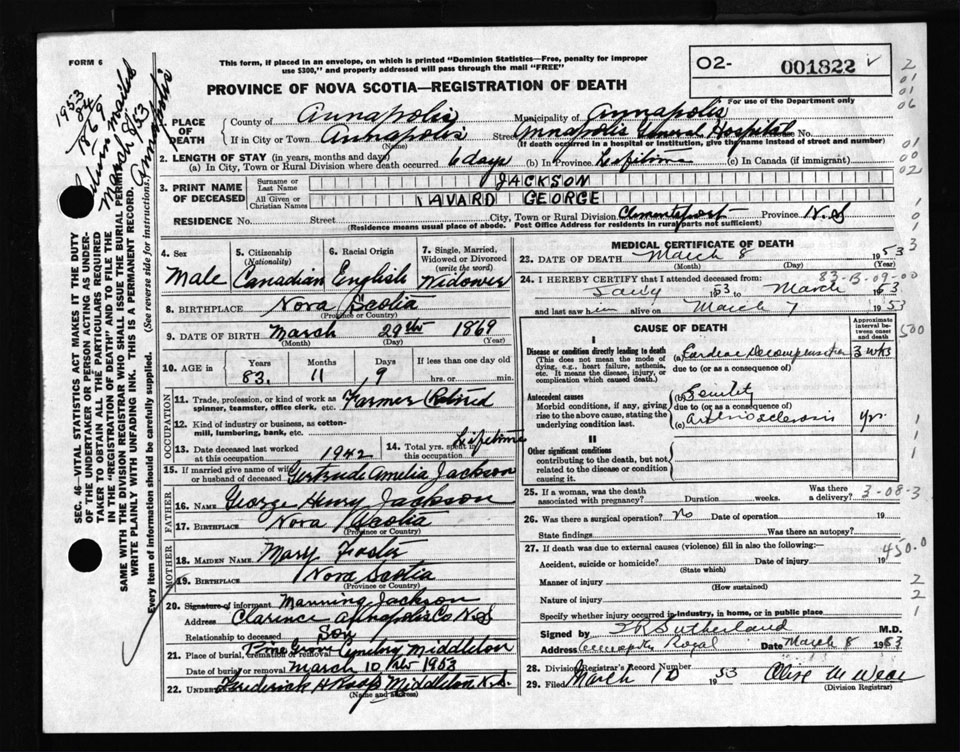 FORM 6
This form, if placed in an envelope, on which is printed "Dominion Statistics—Free, penalty for improper
use $300," and properly addressed will pass through the mail "FREE"
O2- 001822
PROVINCE OF NOVA SCOTIA—REGISTRATION OF DEATH
For use of the Department only
1953
March 8/53
SEC. 46—VITAL STATISTICS ACT MAKES IT THE DUTY
OF THE UNDERTAKER OR PERSON ACTING AS UNDER-
TAKER TO OBTAIN ALL THE PARTICULARS REQUIRED
IN THE "REGISTRATION OF DEATH" AND TO FILE THE
SAME WITH THE DIVISION REGISTRAR WHO SHALL ISSUE THE BURIAL PERMIT
WRITE PLAINLY WITH UNFADING INK. THIS IS A PERMANENT RECORD.
Every item of information should be carefully supplied. (See reverse side for instructions.)
PLACE OF DEATH County of Annapolis Municipality of Annapolis
If in City or Town Annapolis Street Annapolis General Hospital No.
(Name) (If death occurred in a hospital or institution, give the name instead of street and number)
2. LENGTH OF STAY (in years, months and days)
(a) In City, Town or Rural Division where death occurred 6 days (b) In Province Lifetime (c) In Canada (if immigrant)
3. PRINT NAME OF DECEASED Surname or Last Name JACKSON
All Given or Christian Names AVARD GEORGE
RESIDENCE No. Street City, Town or Rural Division Clementsport Province N.S
(Residence means usual place of abode. Post Office Address for residents in rural parts not sufficient)
4. Sex Male
5. Citizenship (Nationality) Canadian
6. Racial Origin English
7. Single, Married, Widowed or Divorced (write the word) Widower
8. BIRTHPLACE Nova Scotia
(Province or Country)
9. DATE OF BIRTH March 29th 1869
(Month) (Day) (Year)
10. AGE in Years 83 Months 11 Days 9 If less than one day old hrs. or min.
OCCUPATION
11. Trade, profession, or kind of work as spinner, teamster, office clerk, etc. Farmer Retired
12. Kind of industry or business, as cotton-mill, lumbering, bank, etc.
13. Date deceased last worked at this occupation 1942 14. Total yrs. spent in this occupation Lifetime
15. If married give name of wife or husband of deceased Gertrude Amelia Jackson
FATHER
16. Name George Henry Jackson
17. Birthplace Nova Scotia
(Province or Country)
MOTHER
18. Maiden Name Mary Foster
19. Birthplace Nova Scotia
(Province or Country)
20. Signature of informant Manning Jackson
Address Clarence Annapolis Co N.S
Relationship to deceased Son
21. Place of burial, cremation or removal Pine Grove Cemetery Middleton
Date of burial or removal March 10 1953
22. Undertaker Frederick H Roop Middleton N.S.
(Name and address)
MEDICAL CERTIFICATE OF DEATH
23. DATE OF DEATH March 8 1953
(Month) (Day) (Year)
24. I HEREBY CERTIFY that I attended deceased from: 83-B-09-00
53 to March 1953
and last saw him alive on March 7 1953
CAUSE OF DEATH
Approximate interval between onset and death
I
Disease or condition directly leading to death (a) Cardiac Decompensation 3 wks
(This does not mean the mode of dying, e.g., heart failure, asthenia, etc. It means the disease, injury, or complication which caused death.)
due to (or as a consequence of)
Antecedent causes (b) Senility
Morbid conditions, if any, giving rise to the above cause, stating the underlying condition last.
due to (or as a consequence of)
(c) Arteriosclerosis yrs.
II
Other significant conditions
contributing to the death, but not related to the disease or condition causing it.
25. If a woman, was the death associated with pregnancy? Duration weeks. Was there a delivery? 3-08-3
26. Was there a surgical operation? No Date of operation 19
State findings Was there an autopsy?
27. If death was due to external causes (violence) fill in also the following:— 450.0
Accident, suicide or homicide? Date of injury 19
(State which)
Manner of injury
(How sustained)
Nature of injury
Specify whether injury occurred in industry, in home, or in public place
Signed by Sutherland M.D.
Address Annapolis Royal Date March 8 1953
28. Division Registrar's Record Number
29. Filed March 10 1953
(Division Registrar)